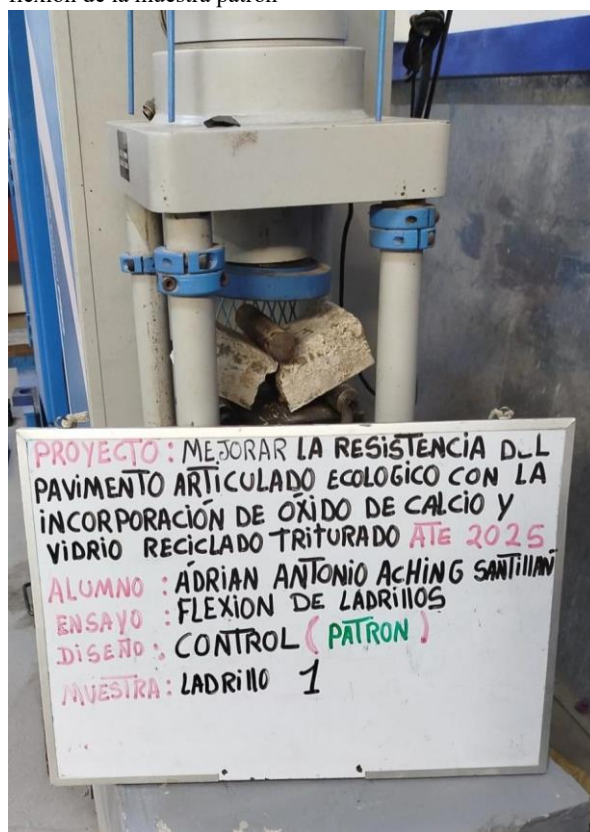 flexión de la muestra patrón
PROYECTO: MEJORAR LA RESISTENCIA D_L
PAVIMENTO ARTICULADO ECOLOGICO CON LA
INCORPORACIÓN DE ÓXIDO DE CALCIO Y
VIDRIO RECICLADO TRITURADO ATE 2025
ALUMNO : ADRIAN ANTONIO ACHING SANTILLAN
ENSAYO : FLEXION DE LADRILLOS
DISEÑO : CONTROL (PATRON)
MUESTRA: LADRILLO 1